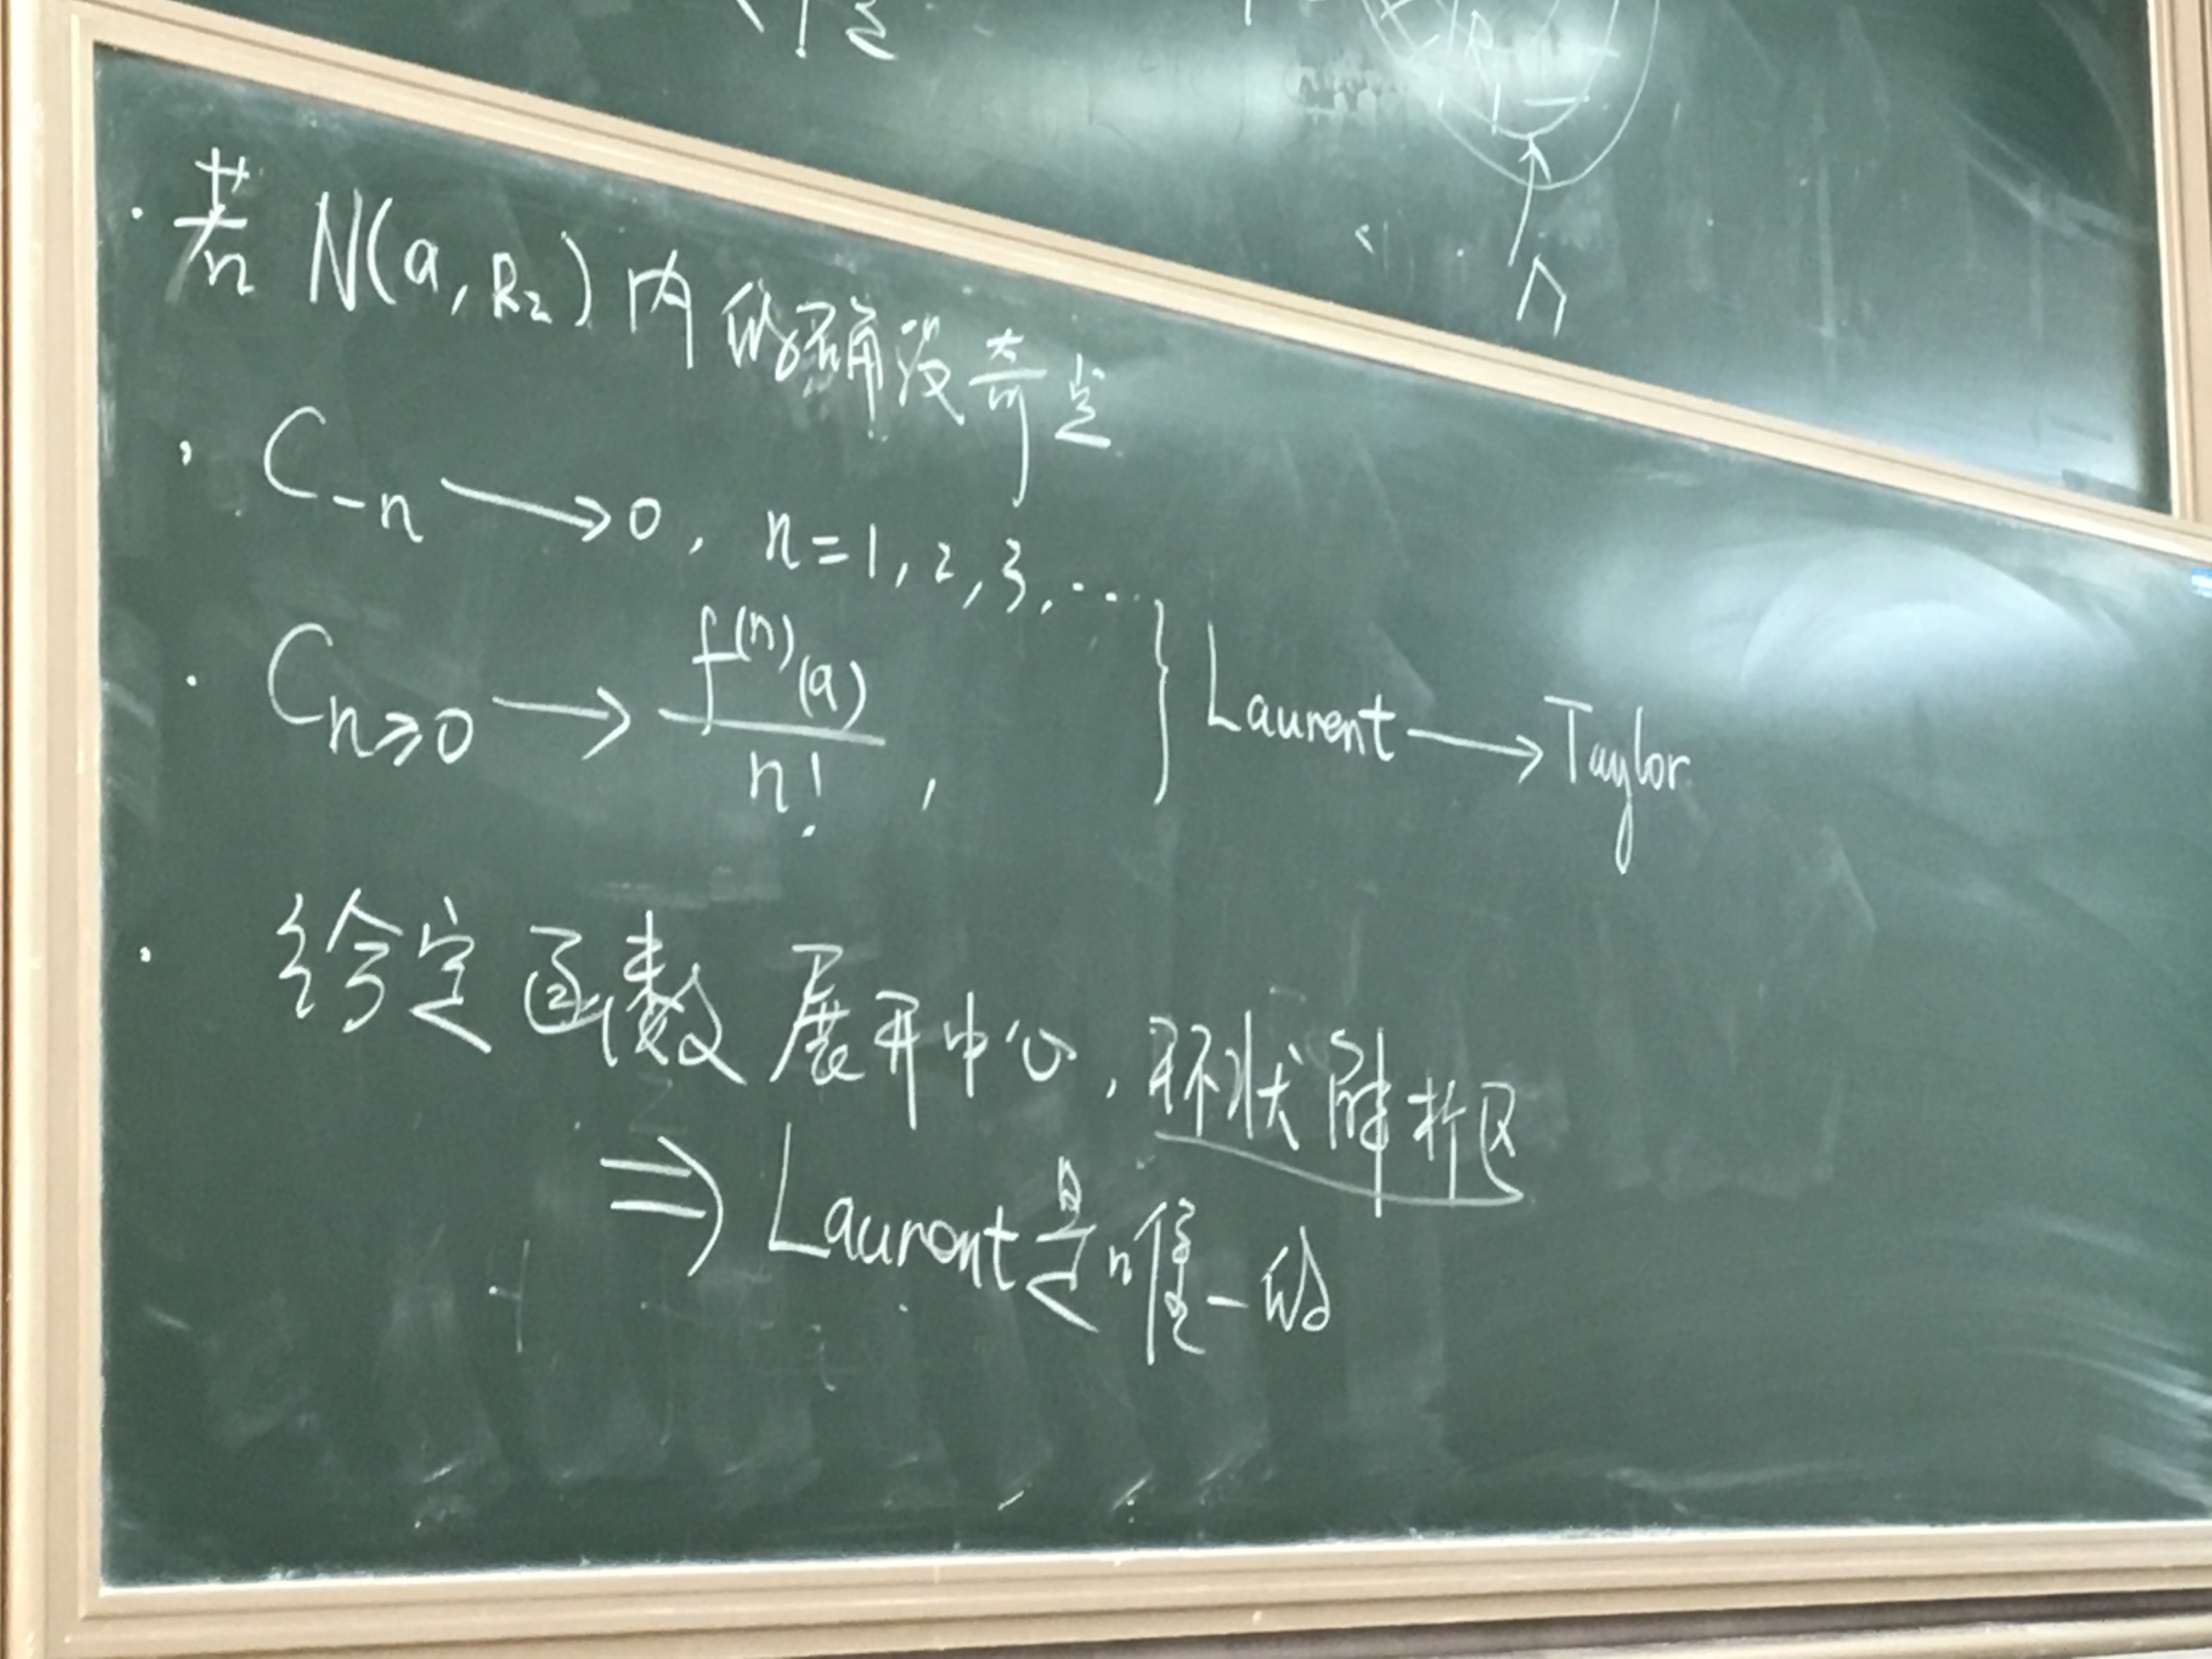 · 若 N(a, R₂) 内的确没奇点
· C₋ₙ → 0, n=1,2,3,...
· Cₙ≥₀ → f⁽ⁿ⁾(a)/n! , } Laurent → Taylor
· 给定函数展开中心, 环状解析区
⇒ Laurent是唯一的